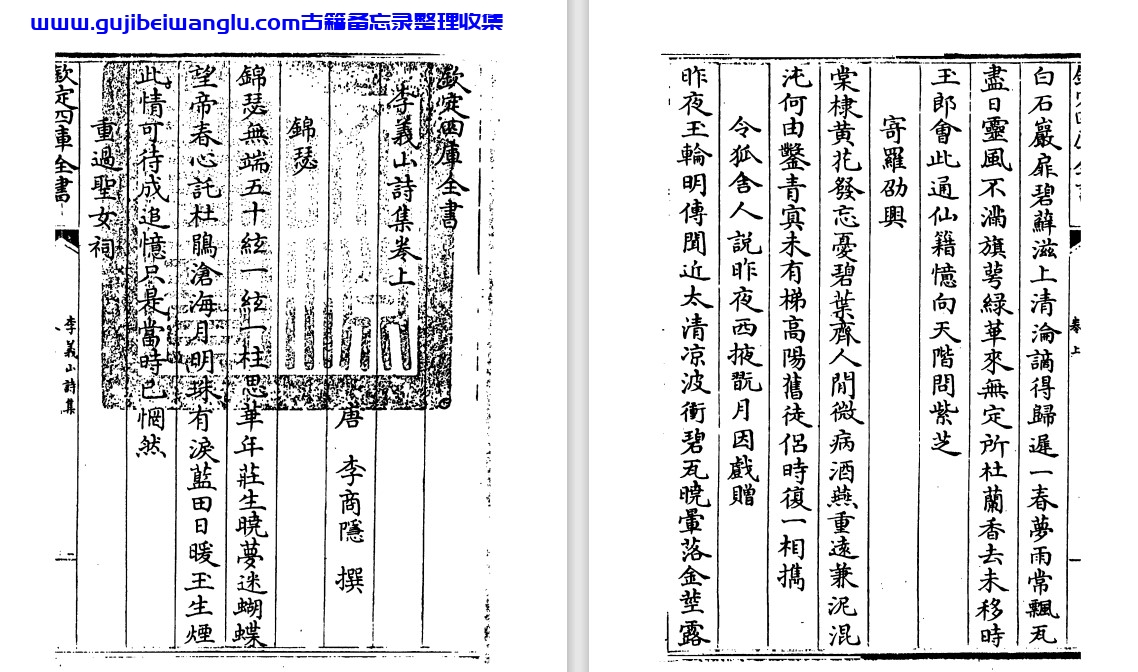 www.gujibeiwanglu.com古籍备忘录整理收集
欽定四庫全書
李義山詩集卷上
唐 李商隱 撰
錦瑟
錦瑟無端五十絃一絃一柱思華年莊生曉夢迷蝴蝶
望帝春心託杜鵑滄海月明珠有淚藍田日暖玉生煙
此情可待成追憶只是當時已惘然
重過聖女祠
欽定四庫全書
李義山詩集
卷上
白石巖扉碧蘚滋上清淪謫得歸遲一春夢雨常飄瓦
盡日靈風不滿旗萼綠華來無定所杜蘭香去未移時
玉郎會此通仙籍憶向天階問紫芝
寄羅劭興
棠棣黃花發忘憂碧葉齊人閒微病酒燕重遠兼泥混
沌何由鑿青冥未有梯高陽舊徒侶時復一相攜
令狐舍人說昨夜西掖翫月因戲贈
昨夜玉輪明傳聞近太清凉波衝碧瓦曉暈落金莖露